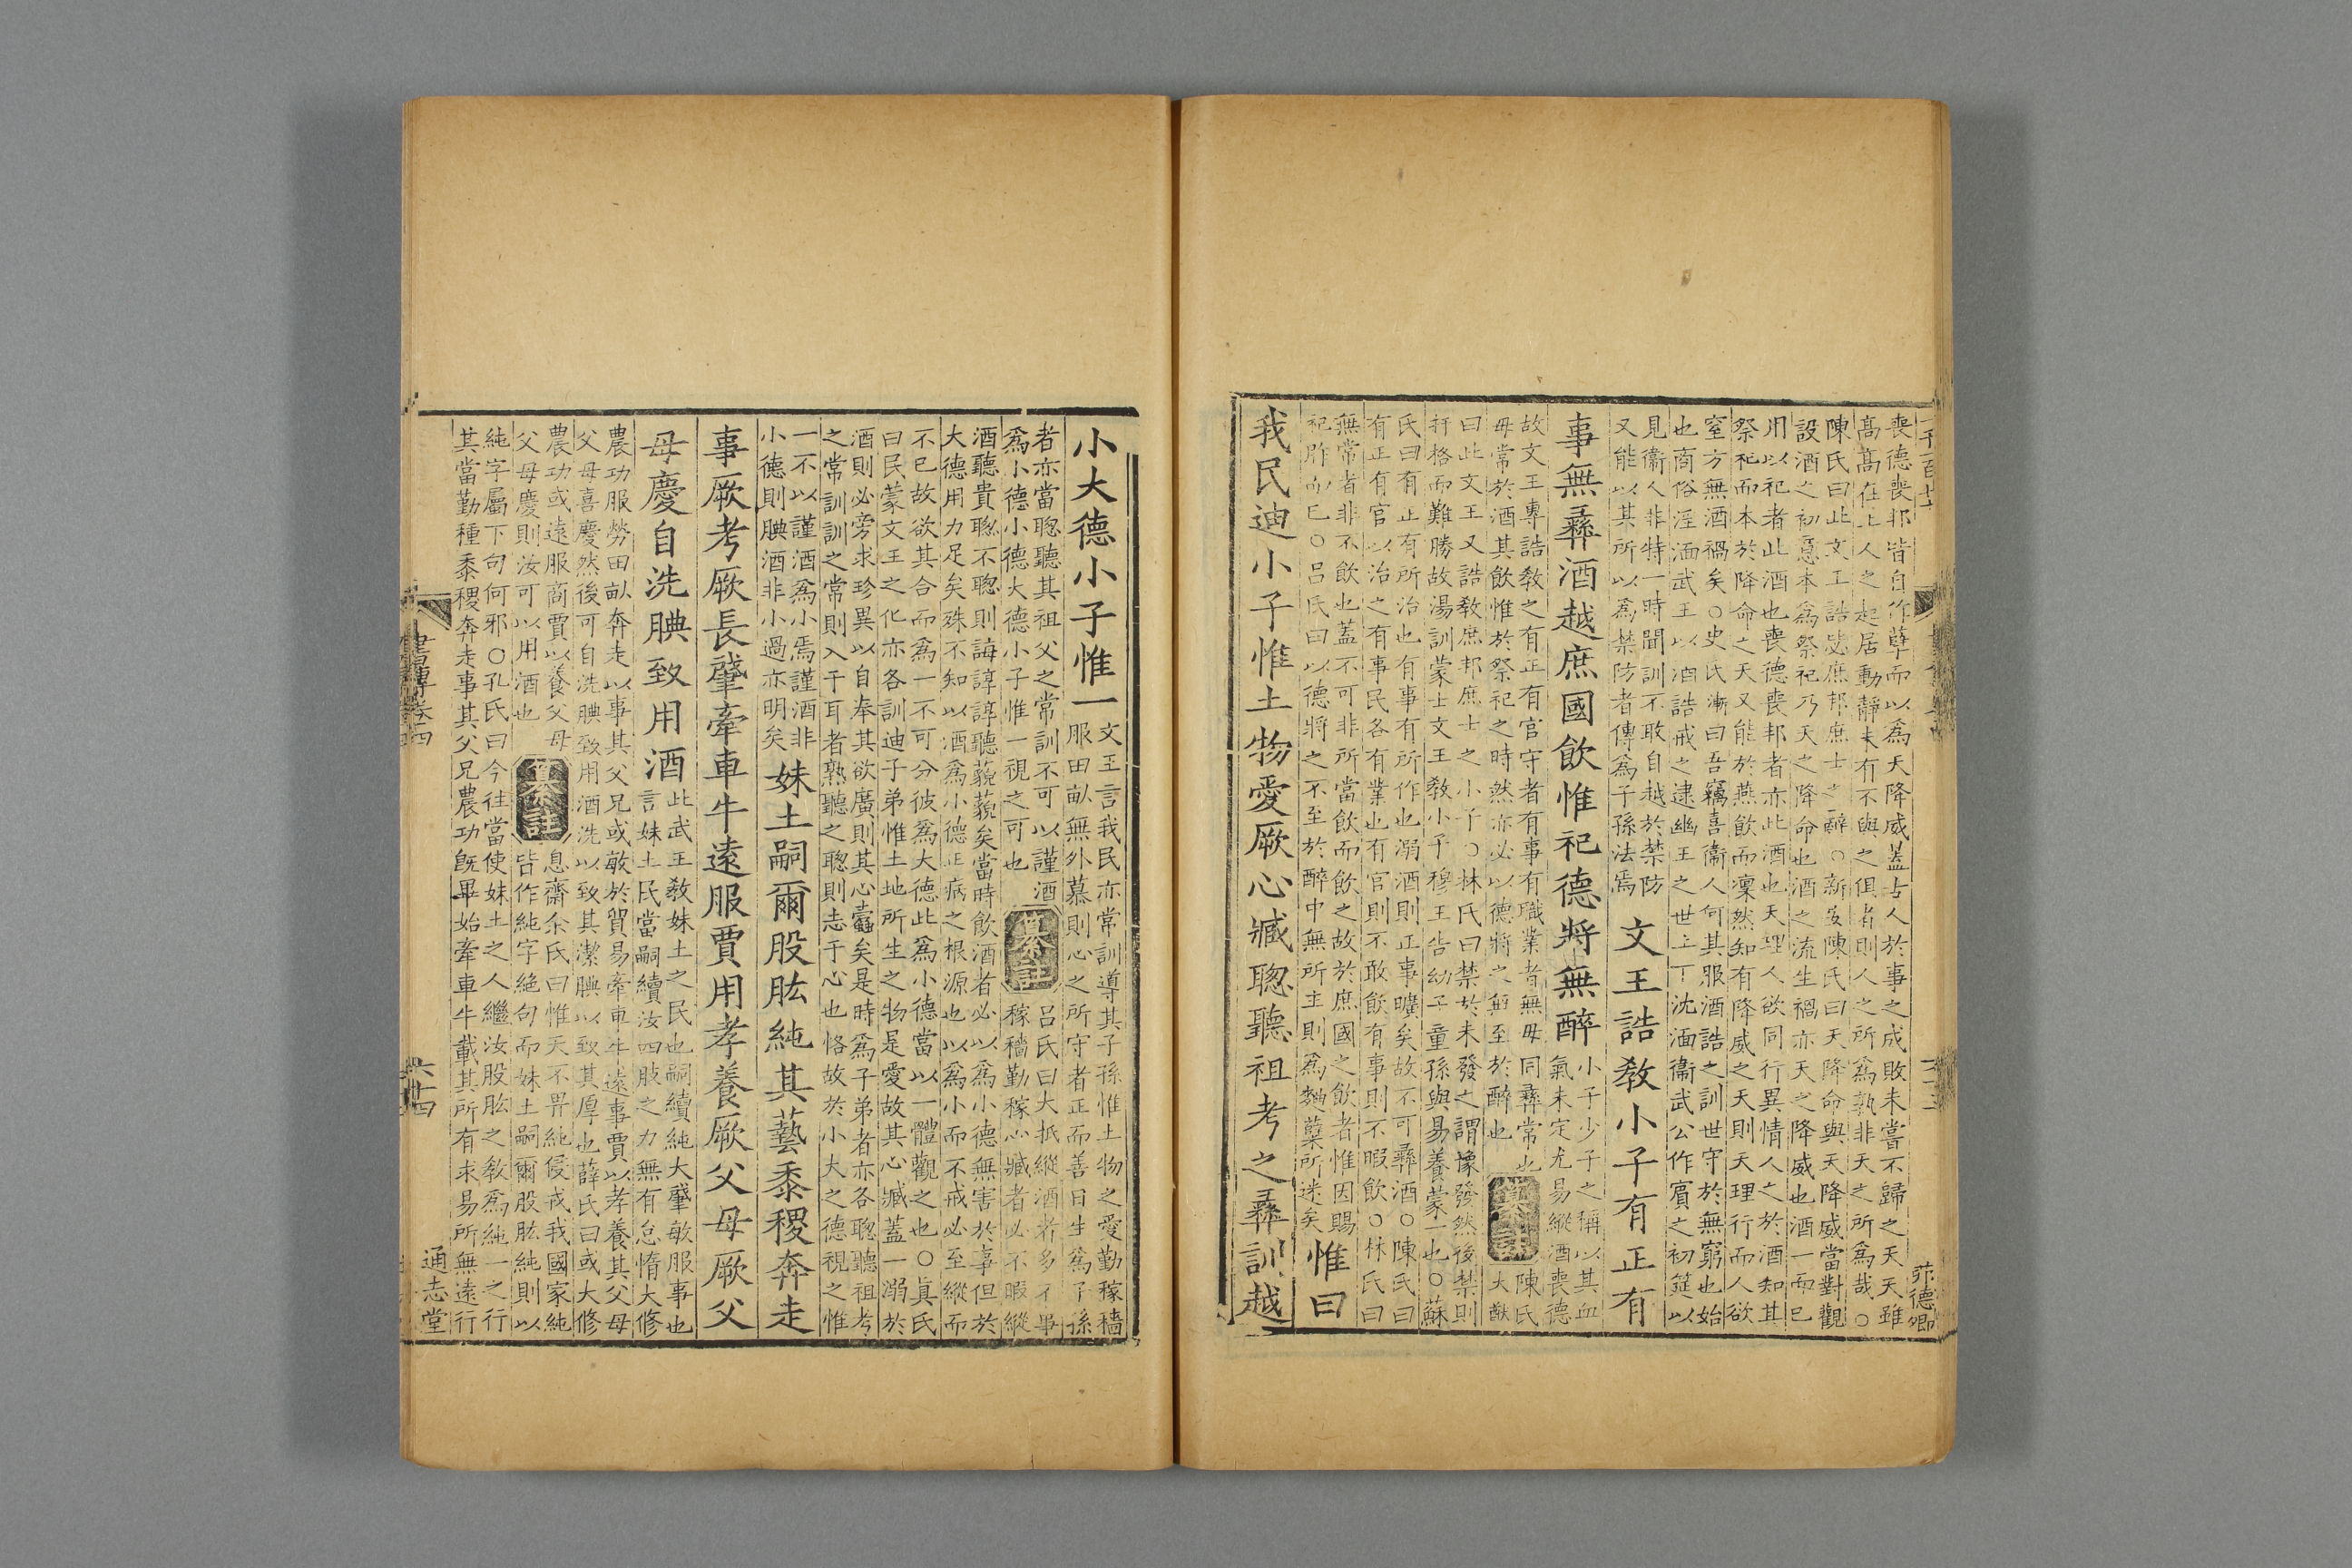 喪德喪邦皆自作孽而以為天降威蓋古人於事之成敗未嘗不歸之天天雖
髙髙在上人之起居動靜未有不與之俱者則人之所為孰非天之所為哉○
陳氏曰此文王誥毖庶邦庶士之辭○新安陳氏曰天降命與天降威當對觀
設酒之初意本為祭祀乃天之降命也酒之流生禍亦天之降威也酒一而已
用以祀者此酒也喪德喪邦者亦此酒也天理人欲同行異情人之於酒知其
祭祀而本於降命之天又能於燕飲而凜然知有降威之天則天理行而人欲
窒方無酒禍矣○史氏漸曰吾竊喜衞人何其服酒誥之訓世守於無窮也始
也商俗淫湎武王以酒誥戒之逮幽王之世上下沈湎衞武公作賓之初筵以
見衞人非特一時聞訓不敢自越於禁防
又能以其所以為禁防者傳為子孫法焉
文王誥敎小子有正有
事無彞酒越庶國飲惟祀德將無醉
小子少子之稱以其血
氣未定尤易縱酒喪德
故文王專誥敎之有正有官守者有事有職業者無毋同彞常也
毋常於酒其飲惟於祭祀之時然亦必以德將之無至於醉也
纂註
陳氏
大猷
曰此文王又誥敎庶邦庶士之小子○林氏曰禁於未發之謂豫發然後禁則
扞格而難勝故湯訓蒙士文王敎小子穆王告幼子童孫與易養蒙一也○蘇
氏曰有正有所治也有事有所作也溺酒則正事曠矣故不可彞酒○陳氏曰
有正有官以治之有事民各有業也有官則不敢飲有事則不暇飲○林氏曰
無常者非不飲也蓋不可非所當飲而飲之故於庶國之飲者惟因賜
祀胙而已○呂氏曰以德將之不至於醉中無所主則為麴糵所迷矣
惟曰
我民迪小子惟土物愛厥心臧聰聽祖考之彞訓越
小大德小子惟一
文王言我民亦常訓導其子孫惟土物之愛勤稼穡
服田畝無外慕則心之所守者正而善日生為子孫
者亦當聰聽其祖父之常訓不可以謹酒
為小德小德大德小子惟一視之可也
纂註
呂氏曰大抵縱酒者多不事
稼穡勤稼心臧者必不暇縱
酒聽貴聰不聰則誨諄諄聽藐藐矣當時飲酒者必以為小德無害於事但於
大德用力足矣殊不知以酒為小德正病之根源也以為小而不戒必至縱而
不已故欲其合而為一不可分彼為大德此為小德當以一體觀之也○眞氏
曰民蒙文王之化亦各訓迪子弟惟土地所生之物是愛故其心臧蓋一溺於
酒則必旁求珍異以自奉其欲廣則其心蠹矣是時為子弟者亦各聰聽祖考
之常訓訓之常則入于耳者熟聽之聰則志于心也恪故於小大之德視之惟
一不以謹酒為小焉謹酒非
小德則腆酒非小過亦明矣
妹土嗣爾股肱純其藝黍稷奔走
事厥考厥長肇牽車牛遠服賈用孝養厥父母厥父
母慶自洗腆致用酒
此武王敎妹土之民也嗣續純大肇敏服事也
言妹土民當嗣續汝四肢之力無有怠惰大修
農功服勞田畝奔走以事其父兄或敏於貿易牽車牛遠事賈以孝養其父母
父母喜慶然後可自洗腆致用酒洗以致其潔腆以致其厚也薛氏曰或大修
農功或遠服商賈以養父母
父母慶則汝可以用酒也
纂註
息齋余氏曰惟天不畀純侵戎我國家純
皆作純字絶句而妹土嗣爾股肱純則以
純字屬下句何邪○孔氏曰今往當使妹土之人繼汝股肱之敎為純一之行
其當勤種黍稷奔走事其父兄農功旣畢始牽車牛載其所有求易所無遠行
書傳卷四
六十四
通志堂